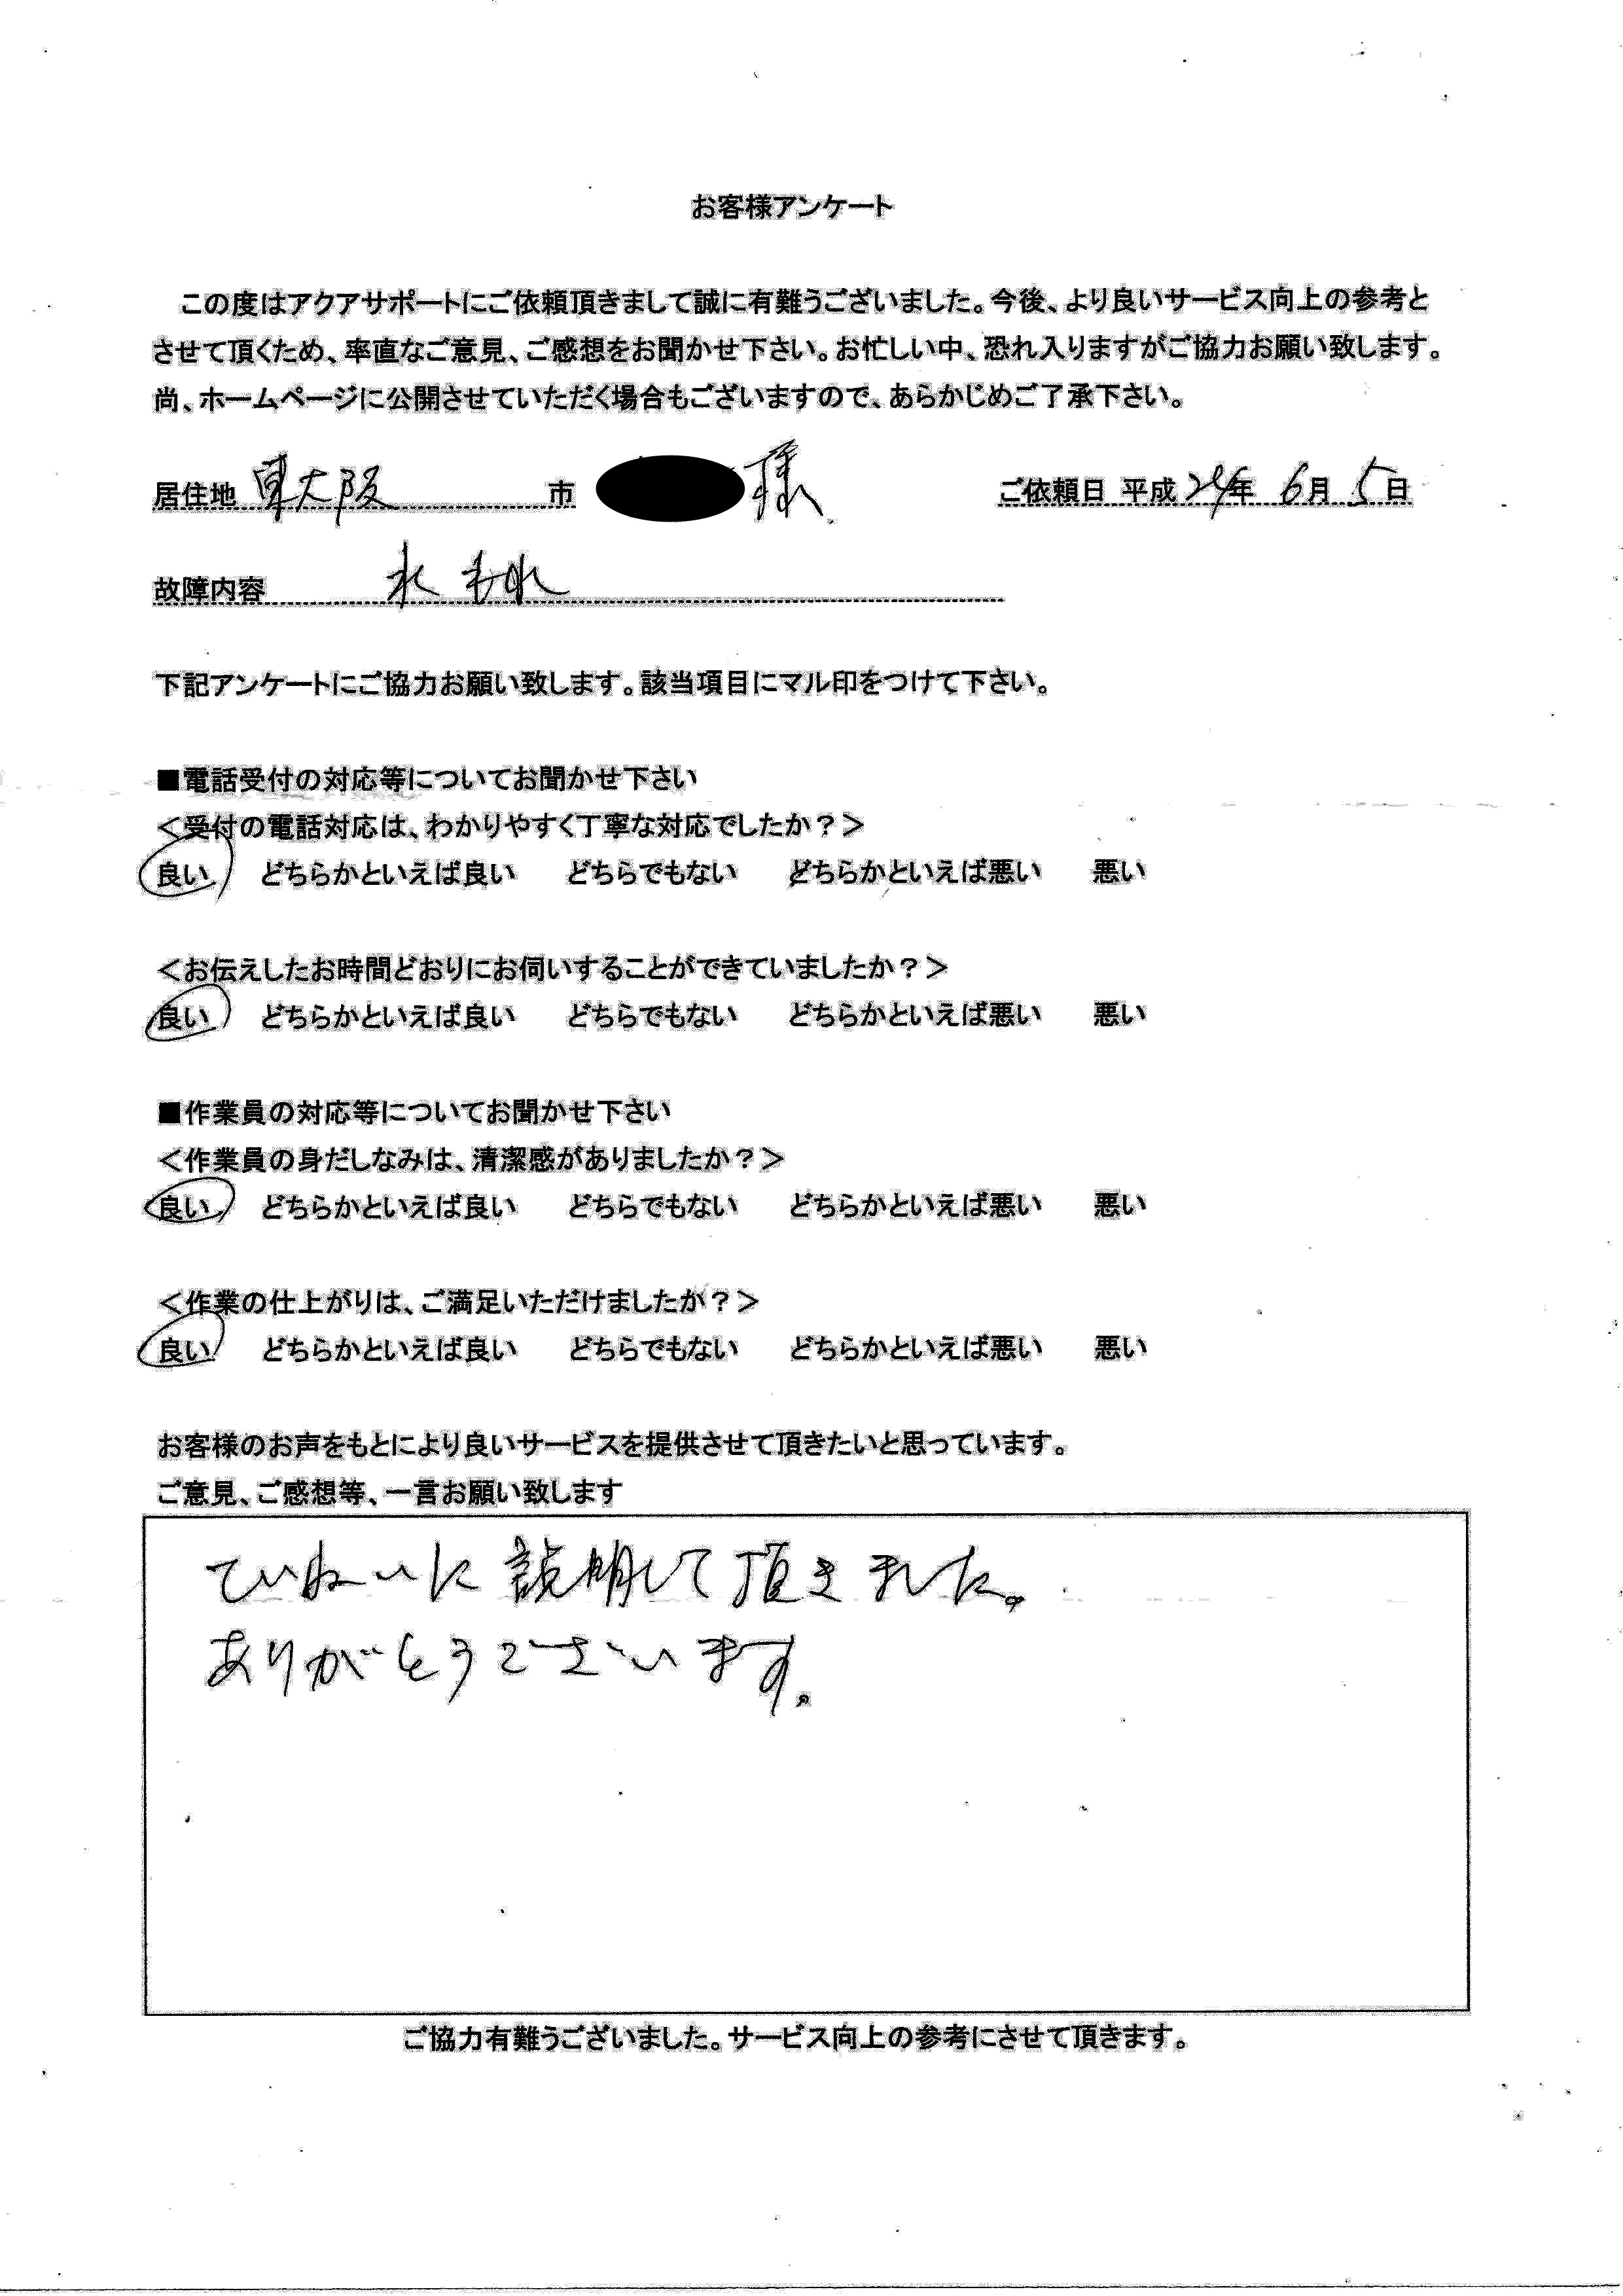 お客様アンケート
この度はアクアサポートにご依頼頂きまして誠に有難うございました。今後、より良いサービス向上の参考と
させて頂くため、率直なご意見、ご感想をお聞かせ下さい。お忙しい中、恐れ入りますがご協力お願い致します。
尚、ホームページに公開させていただく場合もございますので、あらかじめご了承下さい。
居住地 東大阪 市 様 ご依頼日 平成24年 6月 5日
故障内容 水もれ
下記アンケートにご協力お願い致します。該当項目にマル印をつけて下さい。
■電話受付の対応等についてお聞かせ下さい
＜受付の電話対応は、わかりやすく丁寧な対応でしたか？＞
良い どちらかといえば良い どちらでもない どちらかといえば悪い 悪い
＜お伝えしたお時間どおりにお伺いすることができていましたか？＞
良い どちらかといえば良い どちらでもない どちらかといえば悪い 悪い
■作業員の対応等についてお聞かせ下さい
＜作業員の身だしなみは、清潔感がありましたか？＞
良い どちらかといえば良い どちらでもない どちらかといえば悪い 悪い
＜作業の仕上がりは、ご満足いただけましたか？＞
良い どちらかといえば良い どちらでもない どちらかといえば悪い 悪い
お客様のお声をもとにより良いサービスを提供させて頂きたいと思っています。
ご意見、ご感想等、一言お願い致します
ていねいに説明して頂きました。
ありがとうございます。
ご協力有難うございました。サービス向上の参考にさせて頂きます。